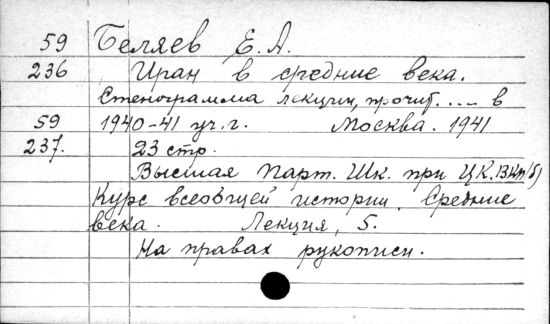 59 Беляев Е. А.
236 Иран в средние века.
Стенограмма лекции, прочит. .... в
59 1940-41 уч. г. Москва. 1941
237. 23 стр.
Высшая Парт. Шк. при ЦК. ВКП(б)
Курс всеобщей истории. Средние
века. Лекция, 5.
На правах рукописи.